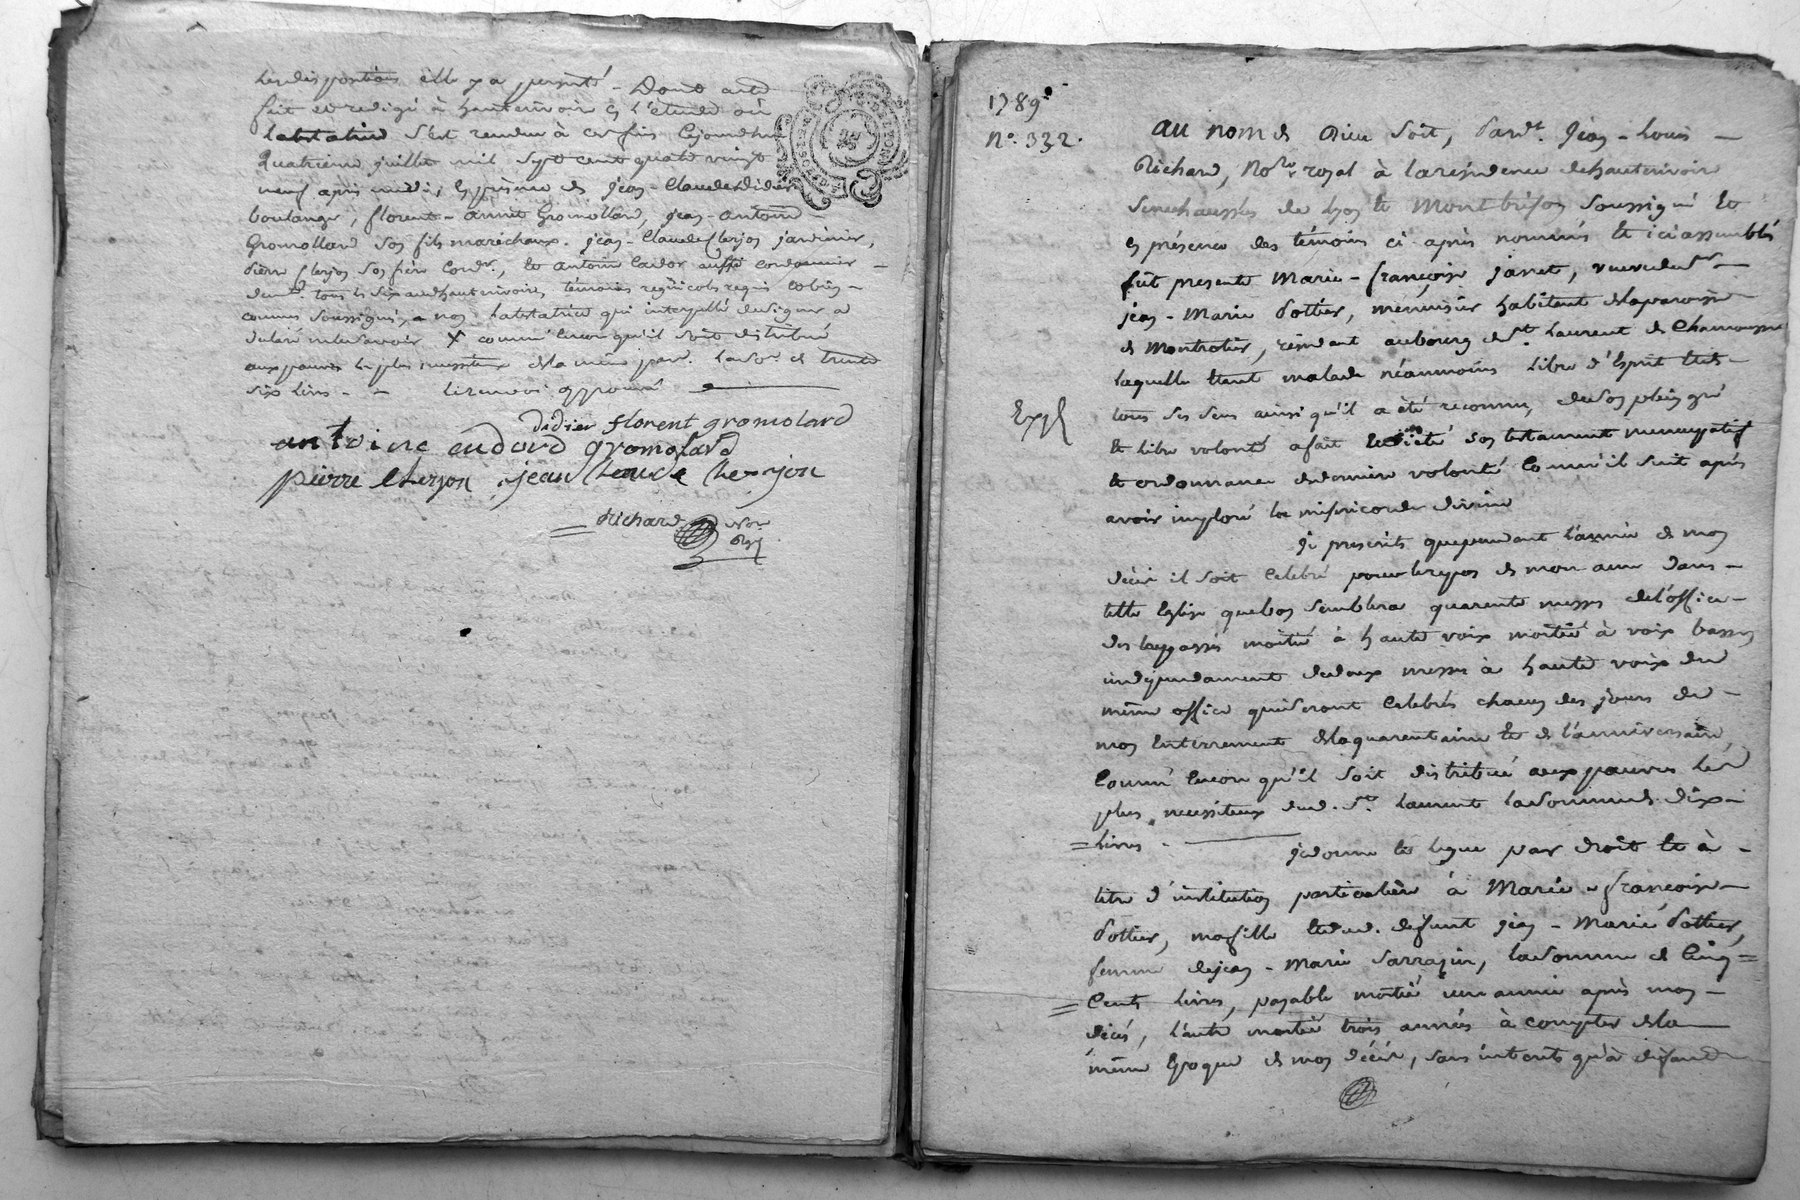 Les dispositions elle y a persisté - Dont acte
fait et redigé à hauterivoire en l'étude où
la testatrice s'est rendue à ces fins cejourdhui
Quatrieme juillet mil sept cent quatre vingt
neuf après midi, en présence de jean-Claude Didier
boulanger, florent-annet Gromollard, jean-antoine
Gromollard son fils maréchaux, jean-Claude Clerjon jardinier,
pierre Clerjon son frère Cord.r, et antoine aussi cordonnier
tous les six aud. hauterivoire, témoins regnicols requis et bien
connus soussignés, non la testatrice qui interpellée de signer a
declaré ne le savoir X comme encor qu'il soit distribué
aux pauvres les plus necessiteux de la même par. la so.e de trente
six livres - - Le renvoi approuvé
Didier florent gromolard
antoine gromolard
pierre Clerjon jean Claude Clerjon
Richard No.re
Ryl
1789
N.o 332.
au nom de Dieu soit, pardt. Jean-Louis
Richard, No.re royal à la residence de hauterivoire
senechaussées de Lyon et Montbrison soussigné et
en présence des témoins ci-après nommés et ici assemblés
fut presente Marie-françoise jarret, veuve de Sr
jean-Marie pottier, menuisier habitant de la paroisse
de Montrotier, residant au bourg de St. Laurent de Chamousset
laquelle étant malade néanmoins libre d'Esprit et de
tous ses sens ainsi qu'il a été reconnu, de son plein gré
Expé
et libre volonté a fait et dicté son testament nuncupatif
et ordonnance de derniere volonté comm'il suit après
avoir imploré la misericorde divine
je prescrits que pendant l'année de mon
décès il soit celebré pour le repos de mon ame dans
telle Eglise que bon semblera quarente messes de l'office
des trepassés moitié à haute voix moitié à voix basse
independament de deux messes à haute voix du
même office qui seront celebrés chacun des jours de
mon enterrement de la quarentaine et de l'anniversaire
Comme encor qu'il soit distribué aux pauvres les
plus necessiteux dud. St. Laurent la somme de dix
= livres -
je donne et legue par droit et à
titre d'institution particulière à Marie-françoise
pottier, ma fille et dud. defunt jean-Marie pottier,
femme de jean-Marie Sarrazin, la somme de cinq =
= Cents livres, payable moitié une année après mon
décés, l'autre moitié trois années à compter de la
même Epoque de mon décès, sans interets qu'à défaut